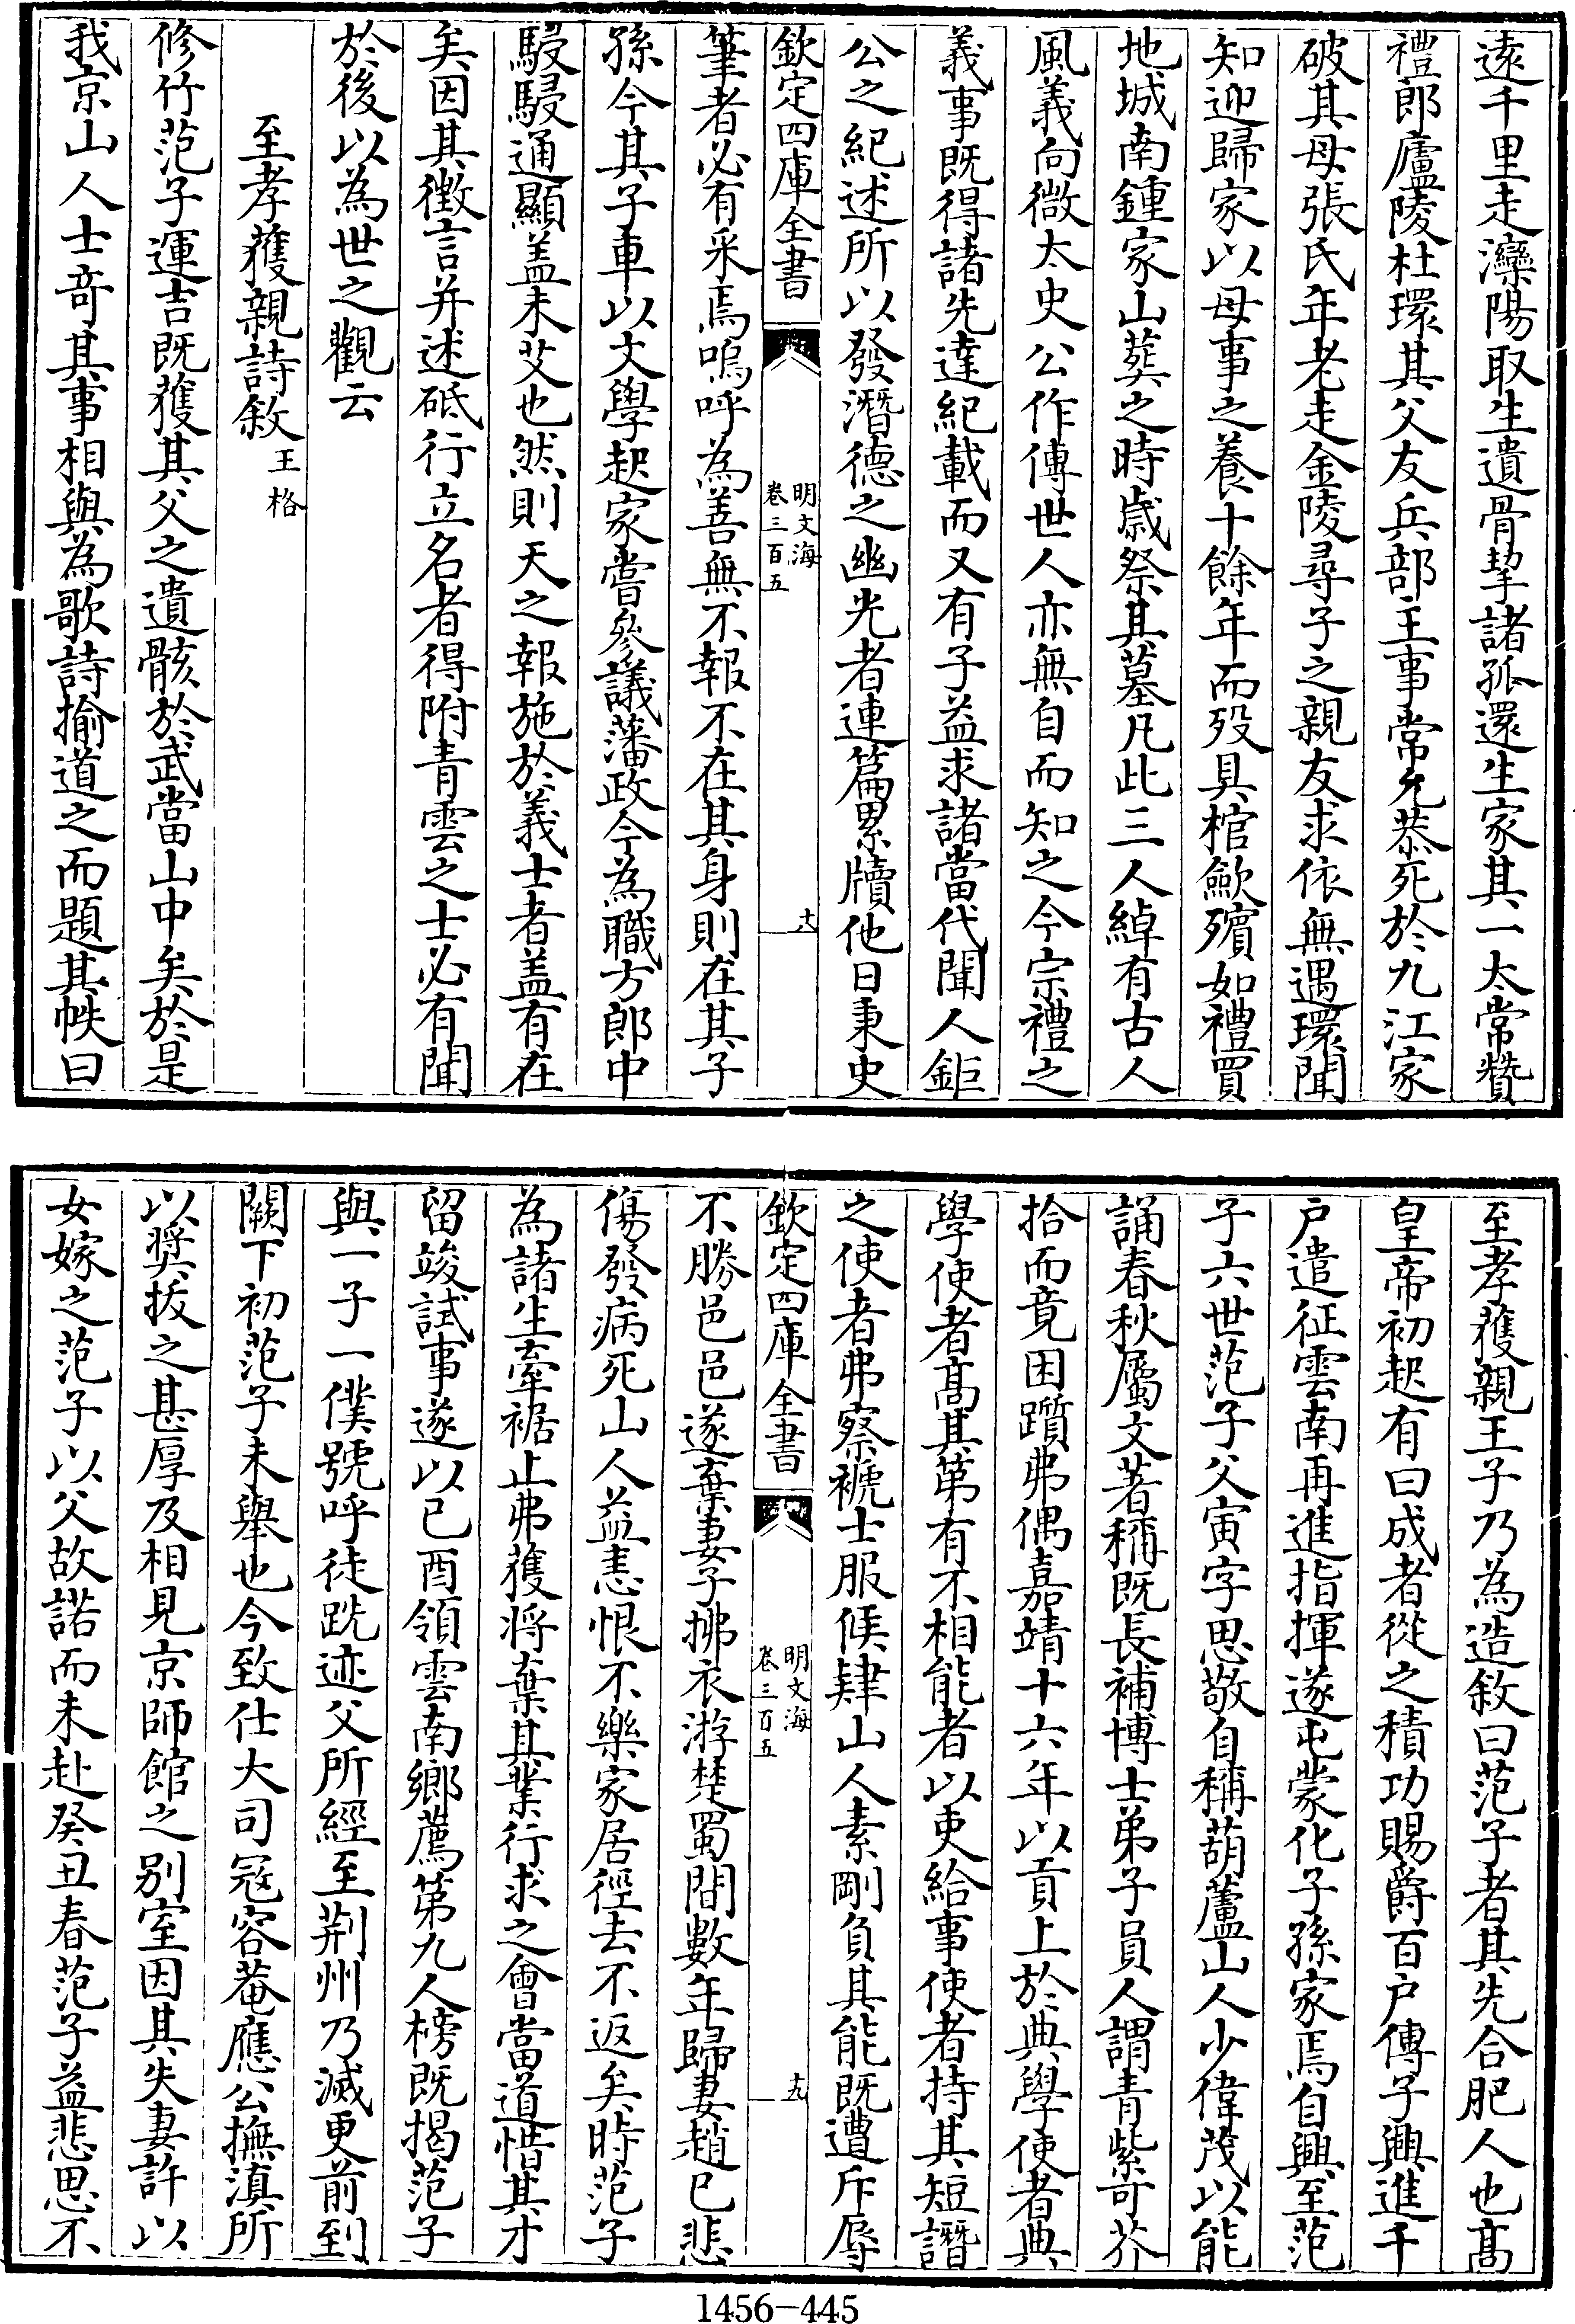 遠千里走灤陽取生遺骨挈諸孤還生家其一太常贊
禮郎廬陵杜環其父友兵部主事常允恭死於九江家
破其母張氏年老走金陵尋子之親友求依無遇環聞
知迎歸家以母事之養十餘年而歿具棺歛殯如禮買
地城南鍾家山葬之時歲祭其墓凡此三人綽有古人
風義向微太史公作傳世人亦無自而知之今宗禮之
義事既得諸先達紀載而又有子益求諸當代聞人鉅
公之紀述所以發潛德之幽光者連篇累牘他日秉史
欽定四庫全書
明文海
卷三百五
十八
筆者必有采焉嗚呼為善無不報不在其身則在其子
孫今其子車以文學起家嘗參議藩政今為職方郎中
駸駸通顯盖未艾也然則天之報施於義士者盖有在
矣因其徵言并述砥行立名者得附青雲之士必有聞
於後以為世之觀云
至孝獲親詩敘王格
修竹范子運吉既獲其父之遺骸於武當山中矣於是
我京山人士竒其事相與為歌詩揄道之而題其帙曰
至孝獲親王子乃為造敘曰范子者其先合肥人也髙
皇帝初起有曰成者從之積功賜爵百户傳子興進千
户遣征雲南再進指揮遂屯蒙化子孫家焉自興至范
子六世范子父寅字思敬自稱葫蘆山人少偉茂以能
誦春秋屬文著稱既長補博士弟子員人謂青紫可芥
拾而竟困躓弗偶嘉靖十六年以貢上於典學使者典
學使者髙其第有不相能者以吏給事使者持其短譖
之使者弗察褫士服候肄山人素剛負其能既遭斥辱
欽定四庫全書
明文海
卷三百五
十九
不勝邑邑遂棄妻子拂衣游楚蜀間數年歸妻趙已悲
傷發病死山人益恚恨不樂家居徑去不返矣時范子
為諸生牽裾止弗獲將棄其業行求之會當道惜其才
留竣試事遂以已酉領雲南鄉薦第九人榜既揭范子
與一子一僕號呼徒跣迹父所經至荆州乃滅更前到
闕下初范子未舉也今致仕大司冦容菴應公撫滇所
以奨拔之甚厚及相見京師館之别室因其失妻許以
女嫁之范子以父故諾而未赴癸丑春范子益悲思不
1456-445